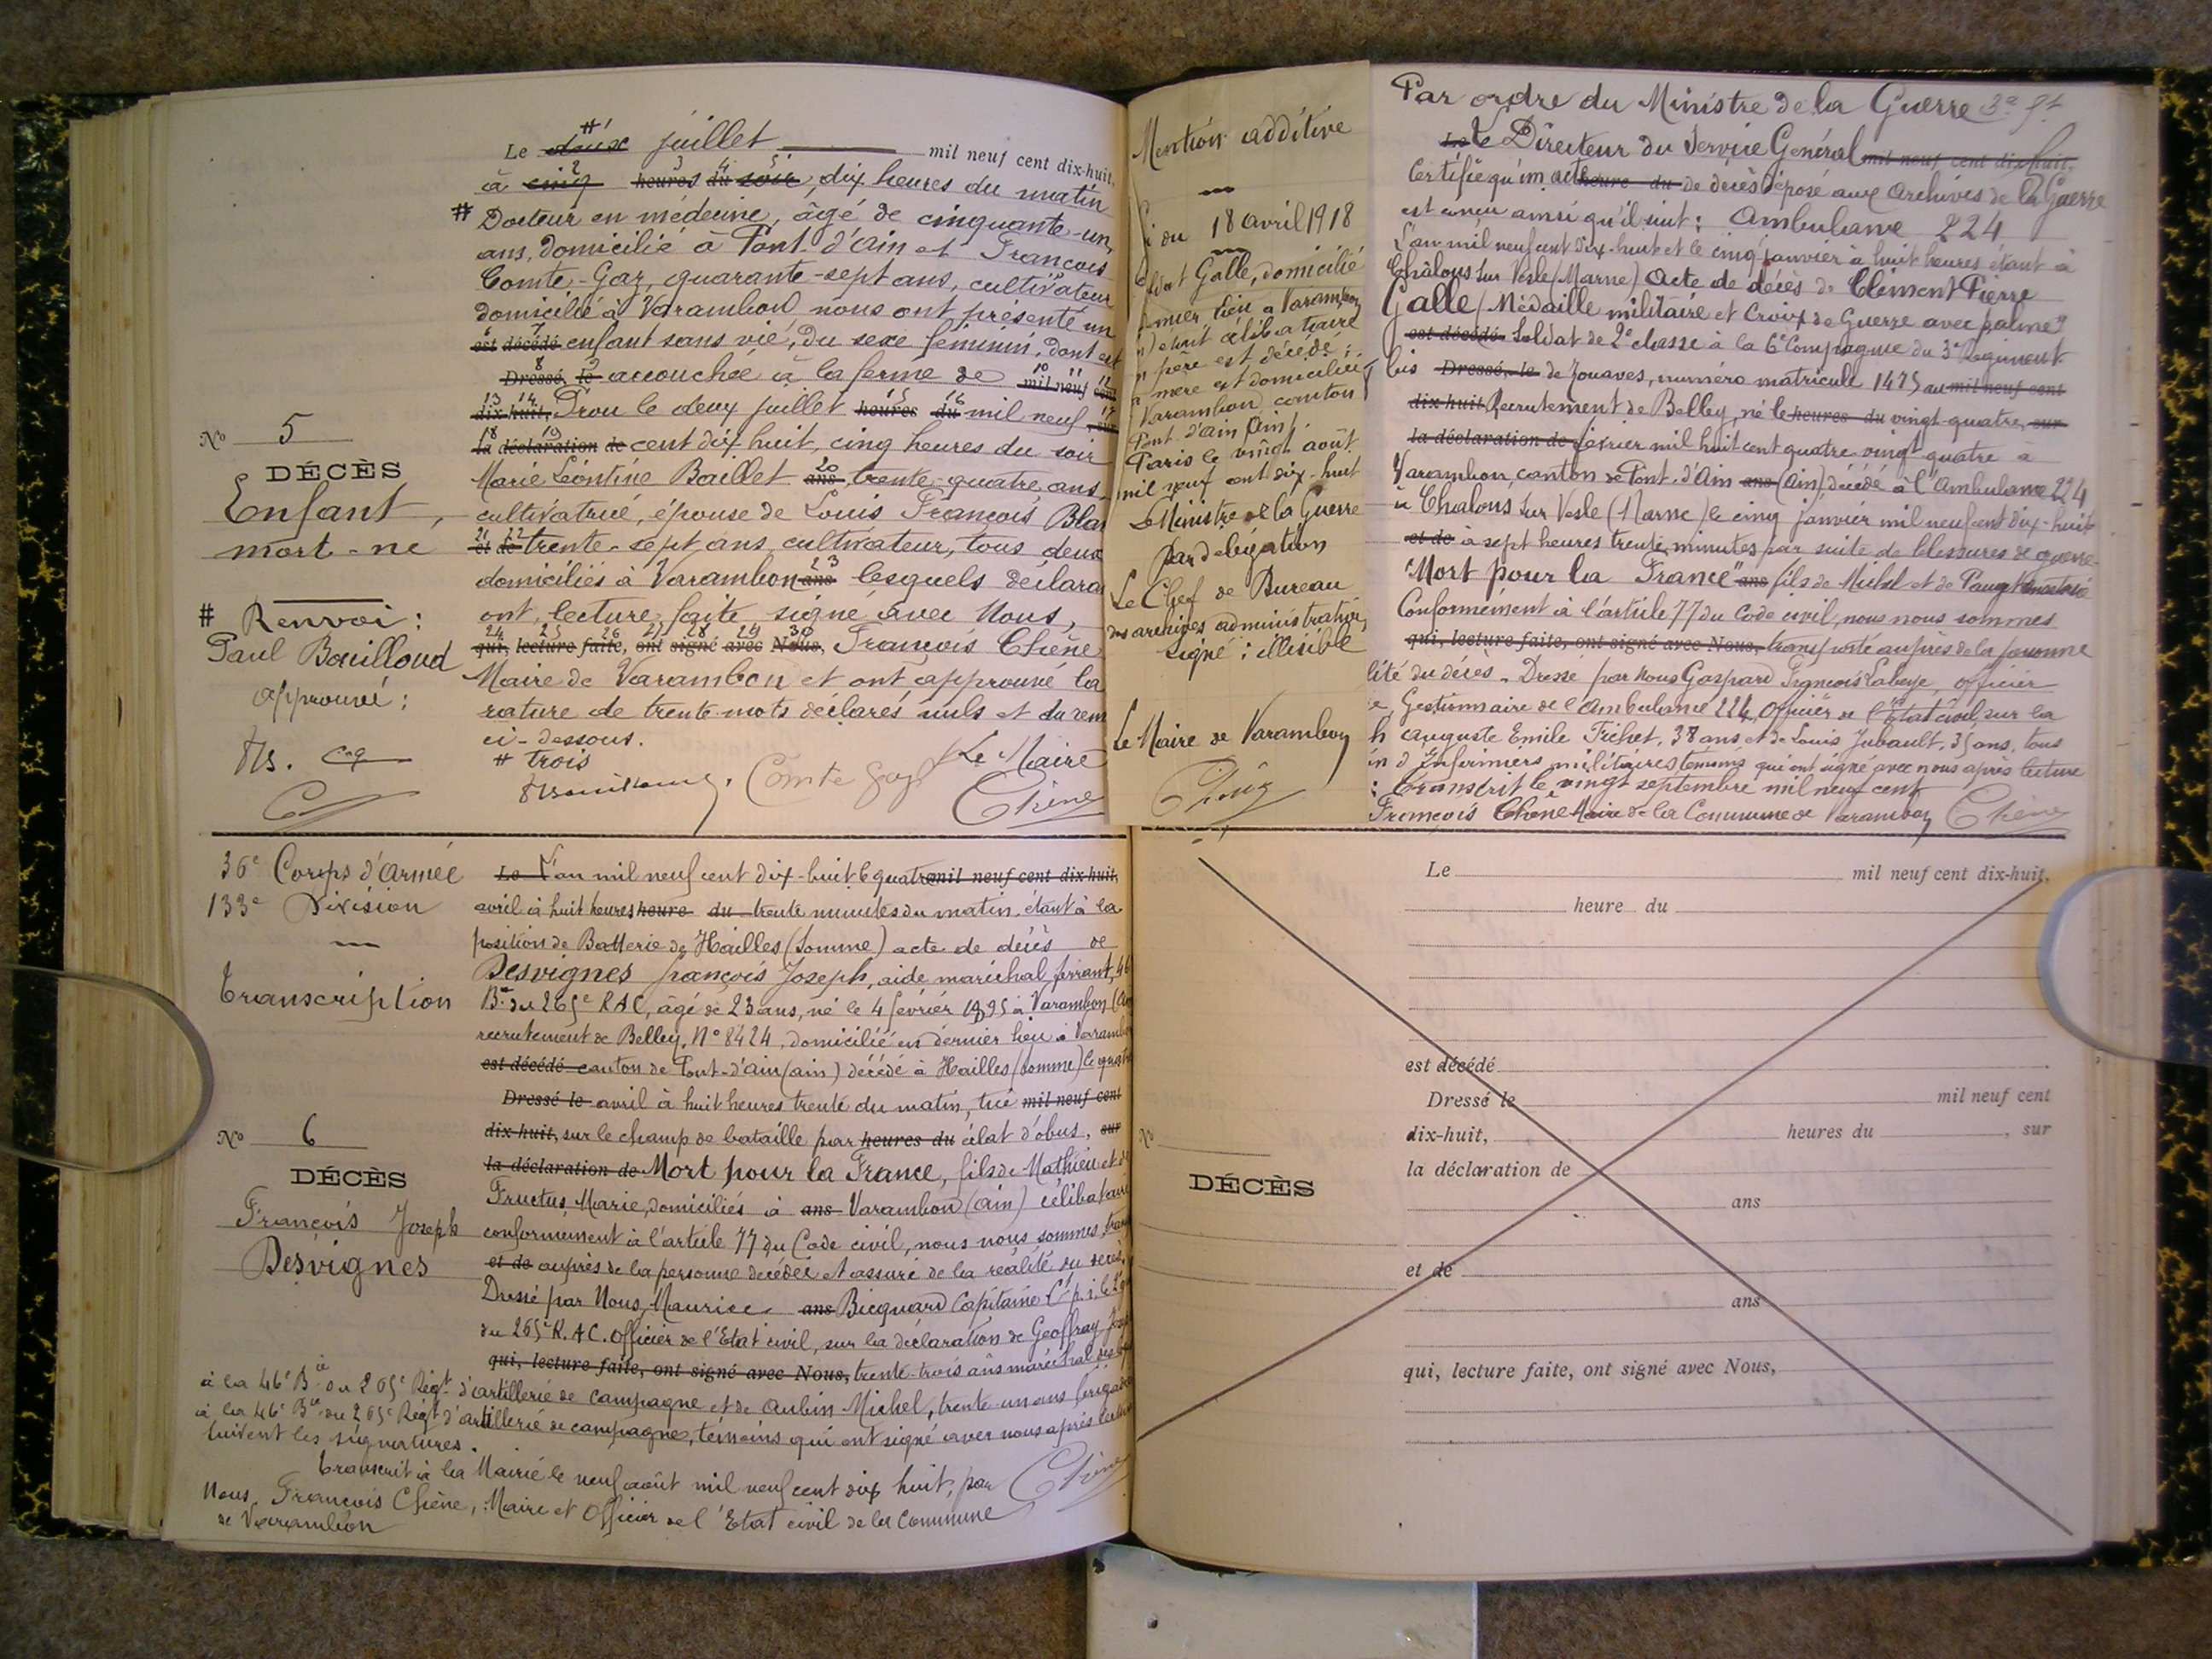 Le deux juillet mil neuf cent dix-huit,
à cinq heures du soir, dix heures du matin
# Docteur en médecine, âgé de cinquante-un
ans, domicilié à Pont-d'Ain et François
Comte-Gaz, quarante-sept ans, cultivateur
domicilié à Varambon nous ont présenté un
est décédé enfant sans vie, du sexe féminin, dont est
Dressé, le accouchée à la ferme de mil neuf cent
dix-huit, Drou le deux juillet heures du mil neuf, sur
la déclaration de cent dix huit, cinq heures du soir
Marie Léontine Baillet ans, trente-quatre ans
cultivatrice, épouse de Louis François
et de trente-sept ans cultivateur, tous deux
domiciliés à Varambon ans lesquels
ont, lecture faite signé avec Nous,
qui, lecture faite, ont signé avec Nous, François Chêne
Maire de Varambon et ont approuvé la
rature de trente mots déclarés nuls et du
ci-dessous.
# trois
Comte Gaz Le Maire
Chêne
No 5
DÉCÈS
Enfant,
mort-né
# Renvoi:
Paul Bouilloud
Approuvé:
36e Corps d'Armée
133e Division
Transcription
No 6
DÉCÈS
François Joseph
Desvignes
Le L'an mil neuf cent dix-huit le quatre mil neuf cent dix-huit,
avril à huit heures heure du trente minutes du matin, étant à la
position de Batterie de Hailles (Somme) acte de décès de
Desvignes françois Joseph, aide maréchal ferrant, 46
Bie du 265e RAC, âgé de 23 ans, né le 4 février 1895 à Varambon
recrutement de Belley, No 8424, domicilié en dernier lieu à
est décédé canton de Pont-d'Ain (ain) décédé à Hailles (Somme) le
Dressé le avril à huit heures trente du matin, tué mil neuf cent
dix-huit, sur le champ de bataille par heures du éclat d'obus, sur
la déclaration de Mort pour la France, fils de Mathieu et
Fructus Marie, domiciliés à ans Varambon (ain) célibataire
conformément à l'article 77 du Code civil, nous nous sommes
et de auprès de la personne décédée et assuré de la réalité du décès,
Dressé par Nous, Maurice ans Bicquard Capitaine
du 265e R.A.C. Officier de l'Etat civil, sur la déclaration de Geoffray
qui, lecture faite, ont signé avec Nous, trente-trois ans maréchal
à la 46e Bie du 265e Régt d'artillerie de campagne et de Aubin Michel, trente-un ans
à la 46e Bie du 265e Régt d'artillerie de campagne, témoins qui ont signé avec nous après
suivent les signatures.
Transcrit à la Mairie le neuf août mil neuf cent dix huit, par
Nous, François Chêne, Maire et Officier de l'Etat civil de la Commune
de Varambon
Chêne
Mention additive
18 avril 1918
Galle, domicilié
lieu à Varambon
était célibataire
père est décédé;
mère est domiciliée
Varambon canton
Pont-d'Ain (Ain).
Paris le vingt août
mil neuf cent dix-huit
Le Ministre de la Guerre
par délégation
Le Chef de Bureau
des archives administratives
signé: illisible
Le Maire de Varambon
Chêne
Par ordre du Ministre de la Guerre
Le Le Directeur du Service Général mil neuf cent dix-huit,
Certifie qu'un acte heure du de décès déposé aux Archives de la Guerre
est conçu ainsi qu'il suit: Ambulance 224
L'an mil neuf cent dix-huit et le cinq janvier à huit heures étant à
Châlons sur Vesle (Marne) Acte de décès de Clément Pierre
Galle (Médaille militaire et Croix de Guerre avec palme)
est décédé Soldat de 2e classe à la 6e Compagnie du 3e Régiment
bis Dressé, le de Zouaves, numéro matricule 1475 au mil neuf cent
dix-huit Recrutement de Belley, né le heures du vingt-quatre, sur
la déclaration de février mil huit cent quatre vingt quatre à
Varambon, canton de Pont-d'Ain ans (ain), décédé à l'Ambulance 224
à Chalons sur Vesle (Marne) le cinq janvier mil neuf cent dix-huit
et de à sept heures trente minutes par suite de blessures de guerre.
"Mort pour la France" ans fils de Michel et de
Conformément à l'article 77 du Code civil, nous nous sommes
qui, lecture faite, ont signé avec Nous, transporté auprès de la personne
du décès. Dressé par nous Gaspard François Labeye, officier
Gestionnaire de l'Ambulance 224, Officier de l'Etat civil, sur la
Auguste Emile Tréhet, 38 ans et de Louis Jubault, 35 ans, tous
Infirmiers militaires témoins qui ont signé avec nous après lecture
Transcrit le vingt septembre mil neuf cent
François Chêne Maire de la Commune de Varambon Chêne
No
DÉCÈS
Le mil neuf cent dix-huit,
heure du
est décédé
Dressé le mil neuf cent
dix-huit, heures du , sur
la déclaration de
ans
et de
ans
qui, lecture faite, ont signé avec Nous,